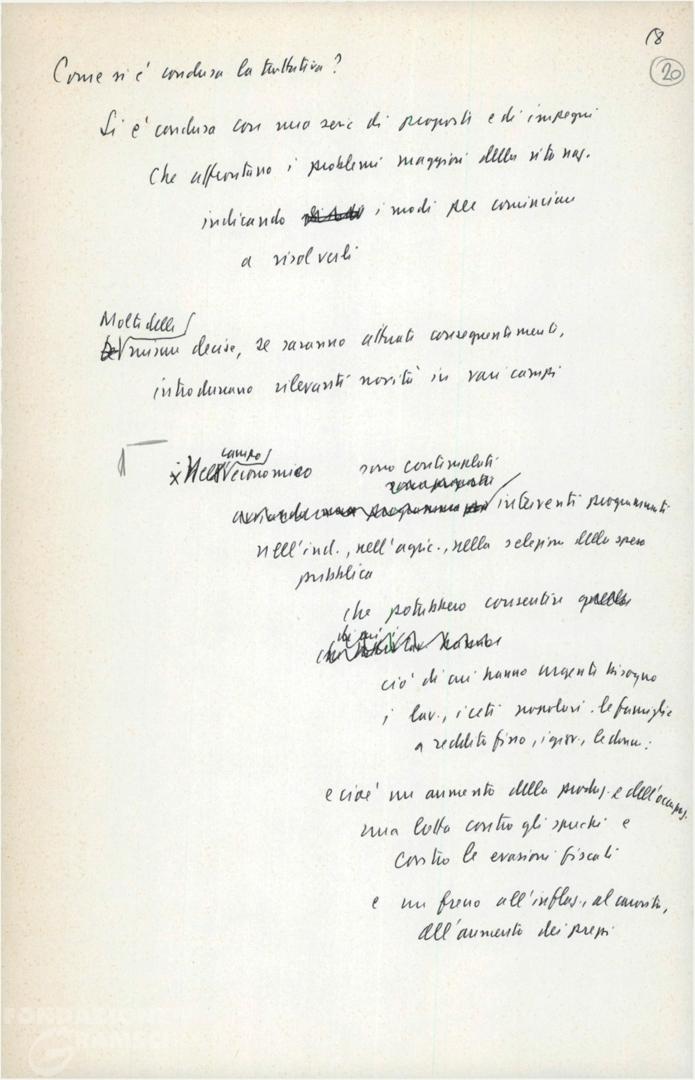 18
20
Come si è conclusa la trattativa?
Si è conclusa con una serie di proposte e di impegni
che affrontano i problemi maggiori della vita naz.
indicando i modi per cominciare
a risolverli
Molte delle
misure decise, se saranno attuate conseguentemente,
introdurranno rilevanti novità in vari campi
campo
Nell'economico sono contemplati
sono proposti
interventi programmati
nell'ind., nell'agric., nella selezione della spesa
pubblica
che potrebbero consentire quello
di cui
ciò di cui hanno urgente bisogno
i lav., i ceti popolari, le famiglie
a reddito fisso, i giov., le donne:
e cioè un aumento della produz. e dell'occupaz.
una lotta contro gli sprechi e
contro le evasioni fiscali
e un freno all'inflaz., al carovita,
all'aumento dei prezzi
FONDAZIONE
GRAMSCI